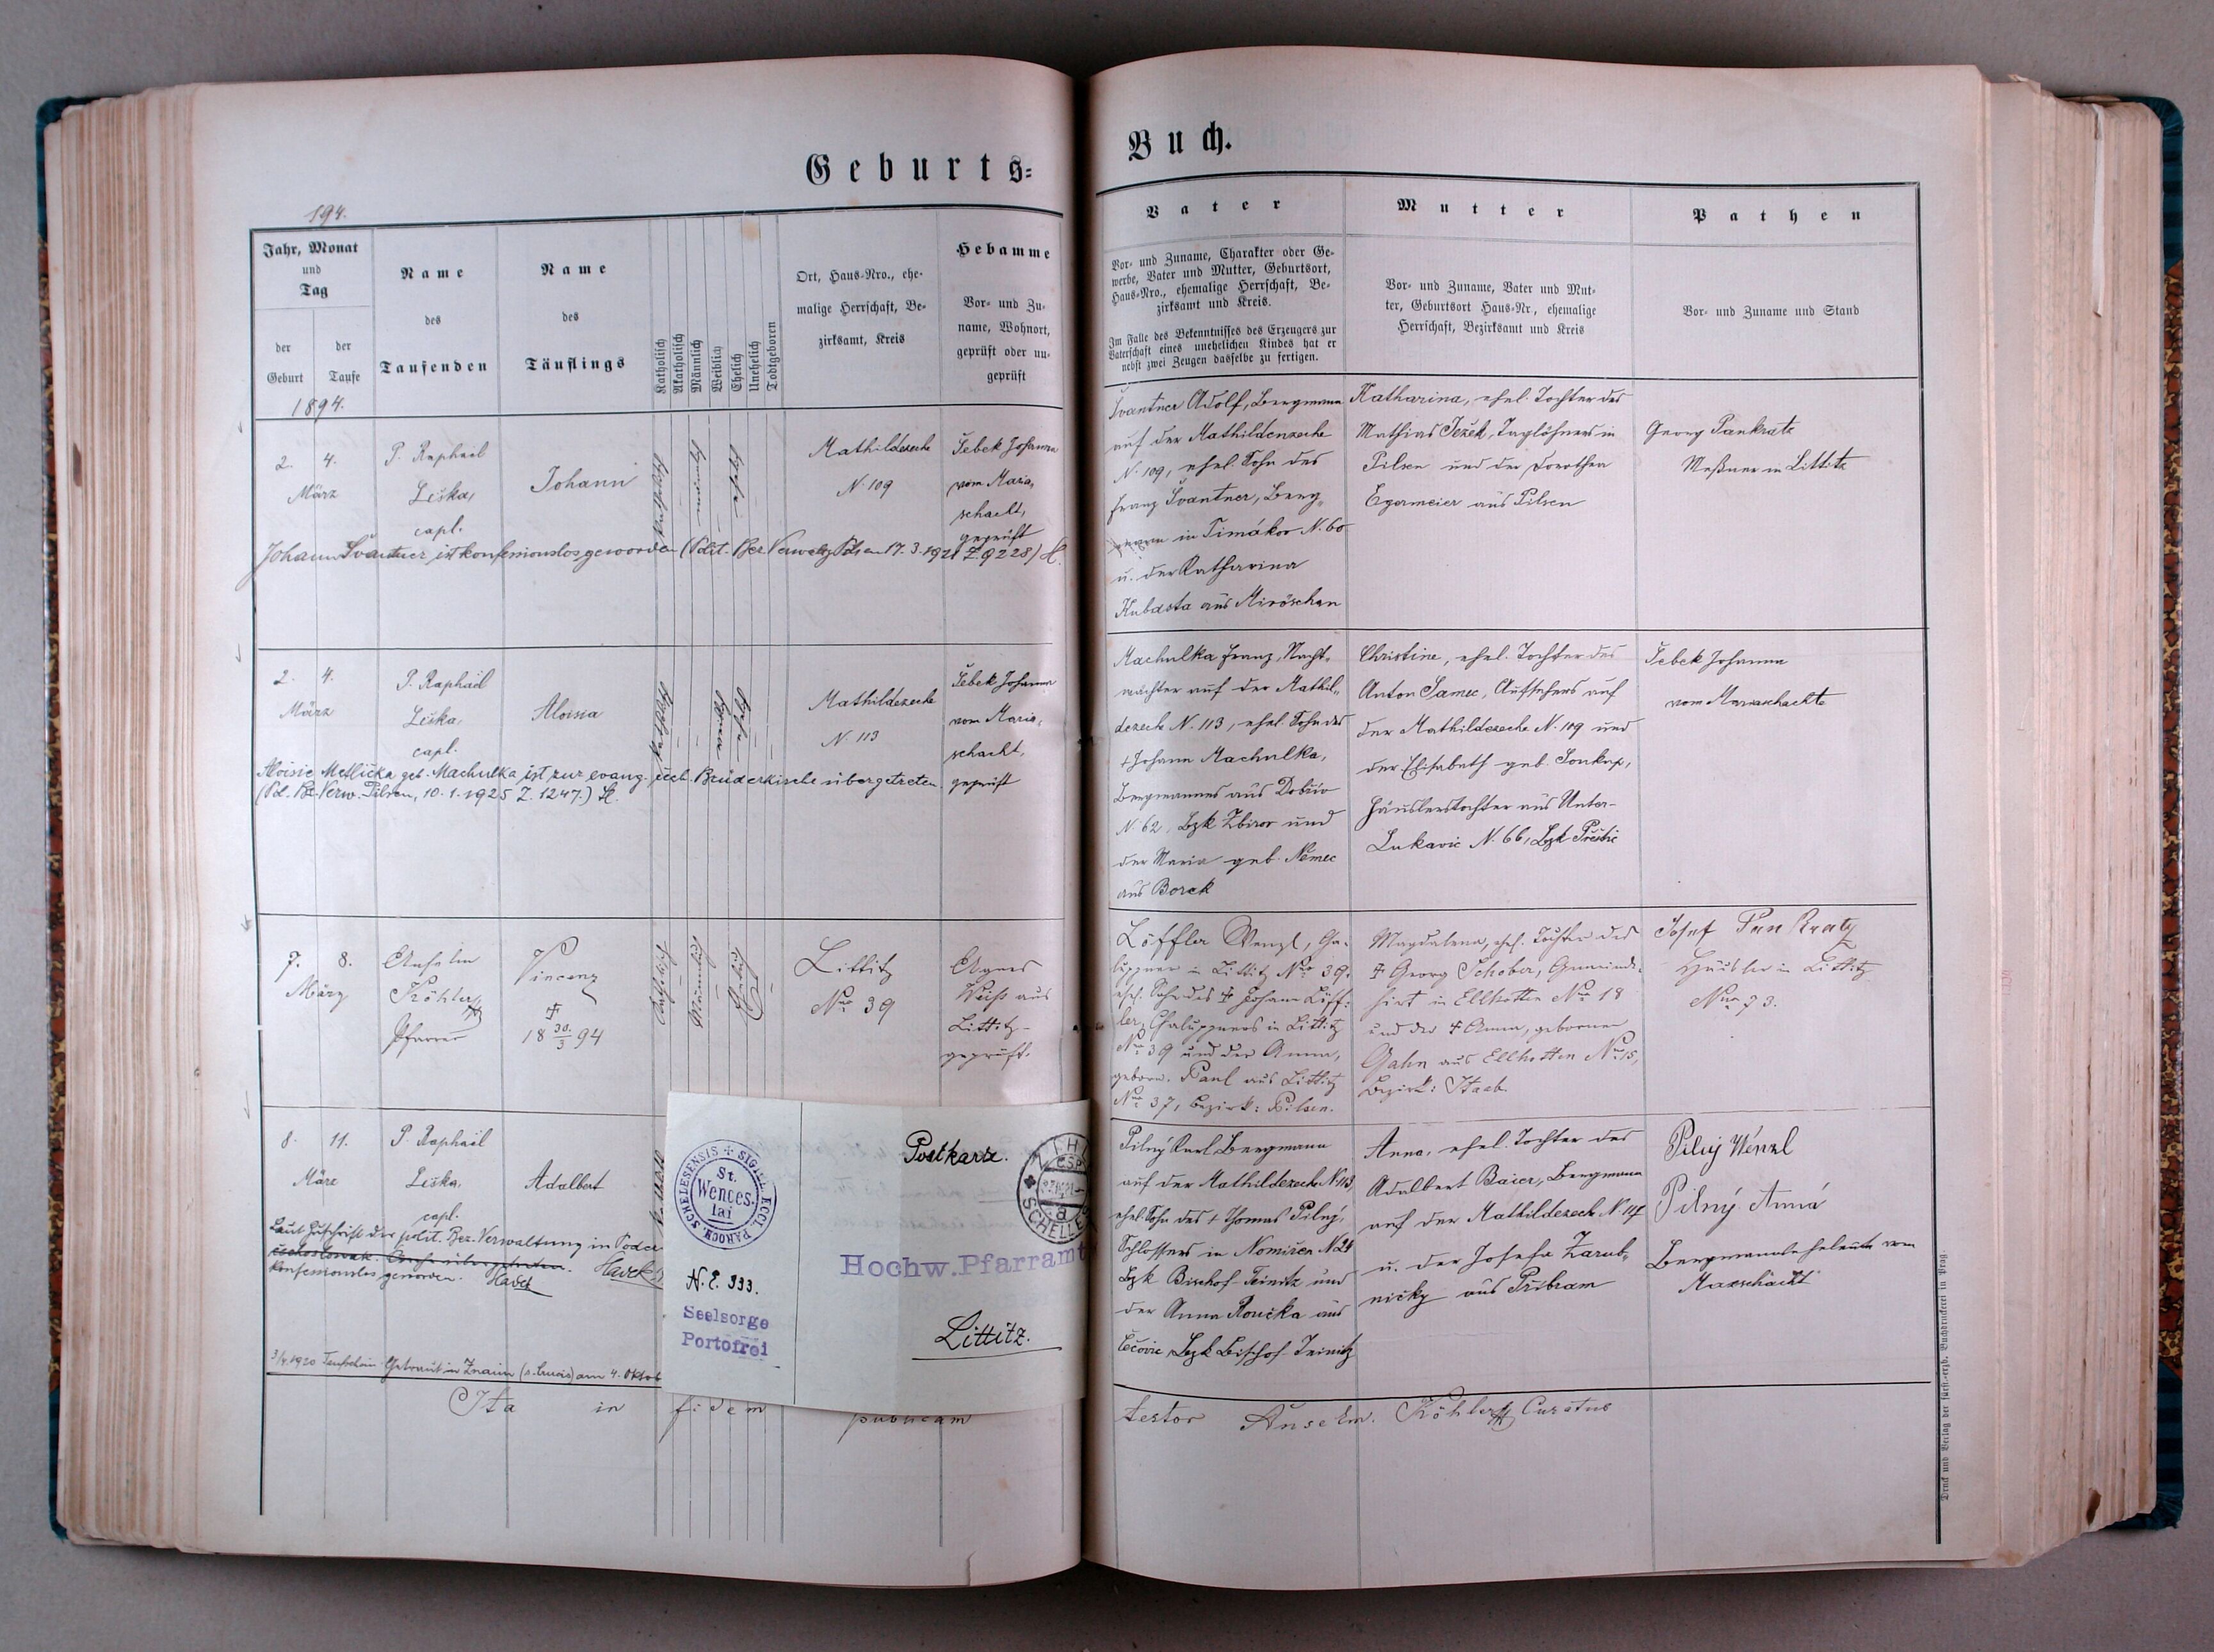 Geburts-
Buch.
194.
Jahr, Monat
und
Tag
der
Geburt
der
Taufe
1894.
Name
des
Taufenden
Name
des
Täuflings
Katholisch
Akatholisch
Männlich
Weiblich
Ehelich
Unehelich
Todtgeboren
Ort, Haus-Nro., ehe-
malige Herrschaft, Be-
zirksamt, Kreis
Hebamme
Vor- und Zu-
name, Wohnort,
geprüft oder un-
geprüft
Vater
Vor- und Zuname, Charakter oder Ge-
werbe, Vater und Mutter, Geburtsort,
Haus-Nro., ehemalige Herrschaft, Be-
zirksamt und Kreis.
Im Falle des Bekenntnisses des Erzeugers zur
Vaterschaft eines unehelichen Kindes hat er
nebst zwei Zeugen dasselbe zu fertigen.
Mutter
Vor- und Zuname, Vater und Mut-
ter, Geburtsort Haus-Nr, ehemalige
Herrschaft, Bezirksamt und Kreis
Pathen
Vor- und Zuname und Stand
2. 4.
März
P. Raphael
Leska,
capl.
Johann
Mathildezeche
N. 109
Šebek Johanna
vom Maria-
schacht,
geprüft
Johann Švantner ist konfessionslos geworden (Polit. Bez. Verwaltg Pilsen 17.3.1921 Z. 9228) H.
Švantner Adolf, Bergmann
auf der Mathildenzeche
N. 109, ehel. Sohn des
Franz Švantner, Berg-
mann in Timákov N. 60
u. der Katharina
Kubasta aus Miröschau
Katharina, ehel. Tochter des
Mathias Ježek, Taglöhners in
Pilsen und der Dorothea
Egermeier aus Pilsen
Georg Pankratz
Meßner in Littitz
2. 4.
März
P. Raphael
Leska,
capl.
Aloisia
Mathildezeche
N. 113
Šebek Johanna
vom Maria-
schacht,
geprüft
Aloisie Metlička geb. Machulka ist zur evang. čech. Brüderkirche übergetreten.
(Pol. Bz. Verw. Pilsen, 10.1.1925 Z. 1247.) H.
Machulka Franz, Nacht-
wächter auf der Mathil-
dezeche N. 113, ehel. Sohn des
† Johann Machulka,
Bergmannes aus Dobřiv
N. 62, Bzk Zbirow und
der Maria geb. Němec
aus Borek
Christine, ehel. Tochter des
Anton Samec, Aufsehers auf
der Mathildezeche N. 109 und
der Elisabeth geb. Soukup,
Häuslerstochter aus Unter-
Lukavic N. 66, Bzk Přeštic
Šebek Johanna
vom Mariaschachte
7. 8.
März
Anselm
Köhler
Pfarrer
Vincenz
†
18 30/3 94
Littitz
Nro 39
Agnes
Weiß aus
Littitz-
geprüft.
Löffler Wenzl, Cha-
luppner in Littitz Nro 39.
ehel. Sohn des † Johann Löff-
ler, Chaluppners in Littitz
Nro 39 und der Anna,
gebor. Paul aus Littitz
Nro 37, Bezirk: Pilsen.
Magdalena, ehel. Tochter des
† Georg Schober, Gemeinde-
hirt in Ellhotten Nro 18
und der † Anna, geborenen
Gahn aus Ellhotten Nro 15,
Bezirk: Staab.
Josef Pankratz
Häusler in Littitz
Nro 73.
8. 11.
März
P. Raphael
Leska,
capl.
Adalbert
Laut Zuschrift der polit. Bez. Verwaltung in
konfessionslos geworden. Havel
3/4. 1920 Taufschein. Getraut in Znaim (s. Crucis) am 4. Oktob
Pilný Karl, Bergmann
auf der Mathildezeche N. 113,
ehel. Sohn des † Thomas Pilný,
Schlossers in N. 24
Bzk Bischof-Teinitz und
der Anna Roučka aus
Čečovic, Bzk Bischof-Teinitz
Anna, ehel. Tochter des
Adalbert Baier, Bergmann
auf der Mathildezech N. 117
u. der Josefa Zarub-
nicky aus Přibram
Pilný Wenzl
Pilný Anna
Bergmannseheleute vom
Maxschacht
SIGILL. ECCL. PAROCH. SCHELESENSIS
St.
Wences-
lai
N. E. 333.
Seelsorge
Portofrei
Postkarte.
SCHELLES
Hochw. Pfarramt
Littitz.
Ita in fidem publicam
testor Anselm. Köhler Curatus
Druck und Verlag der fürst.-erzb. Buchdruckerei in Prag.